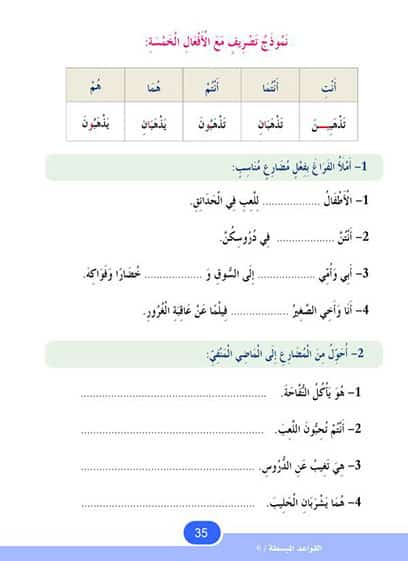 نَمُوذَجُ تَصْرِيفٍ مَعَ الْأَفْعَالِ الْخَمْسَةِ:
أَنْتِ أَنْتُمَا أَنْتُمْ هُمَا هُمْ
تَذْهَبِيـــنَ تَذْهَبَانِ تَذْهَبُونَ يَذْهَبَانِ يَذْهَبُونَ
1- أَمْلَأُ الفَرَاغَ بِفِعْلٍ مُضَارِعٍ مُنَاسِبٍ:
1- الْأَطْفَالُ .................. لِلَّعِبِ فِي الْحَدَائِقِ.
2- أَنْتُنَّ .................. فِي دُرُوسِكُنَّ.
3- أَبِي وَأُمِّي .................. إِلَى السُّوقِ وَ .................. خُضَارًا وَفَوَاكِهَ.
4- أَنَا وَأَخِي الصَّغِيرُ .................. فِيلْمًا عَنْ عَاقِبَةِ الْغُرُورِ.
2- أُحَوِّلُ مِنَ الْمُضَارِعِ إِلَى الْمَاضِي الْمَنْفِيِّ:
1- هُوَ يَأْكُلُ التُّفَّاحَةَ. ......................................................
2- أَنْتُمْ تُحِبُّونَ اللَّعِبَ. ......................................................
3- هِيَ تَغِيبُ عَنِ الدُّرُوسِ. ......................................................
4- هُمَا يَشْرَبَانِ الْحَلِيبَ. ......................................................
35
القواعد المبسطة / 6